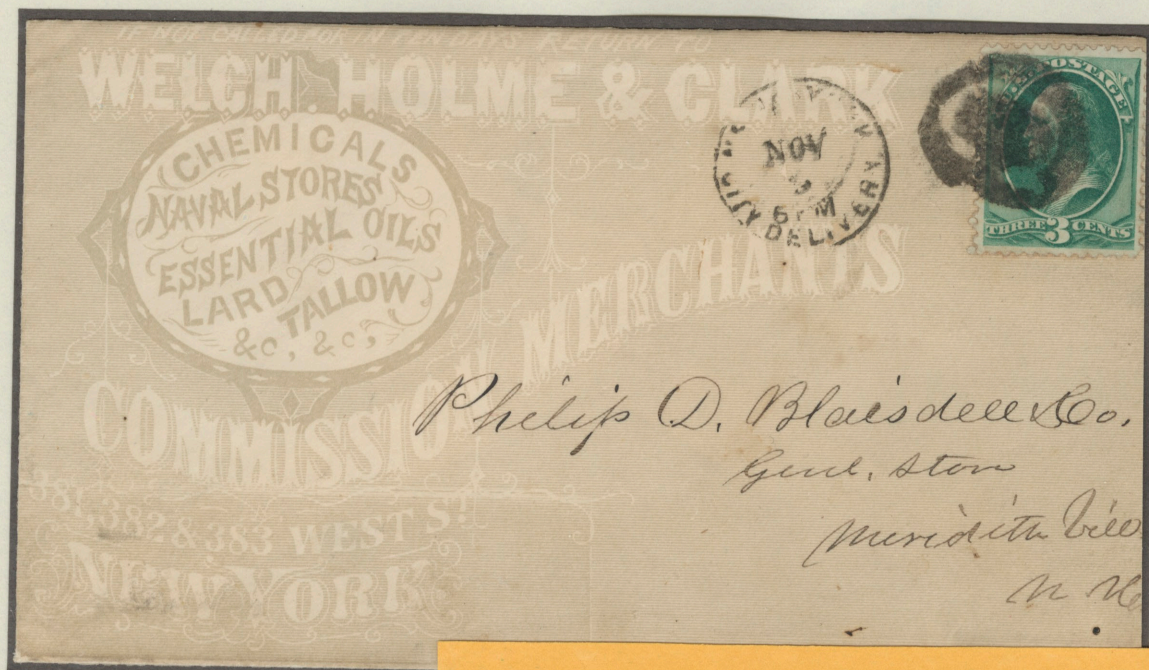 IF NOT CALLED FOR IN TEN DAYS RETURN TO
WELCH, HOLME & CLARK
CHEMICALS
NAVAL STORES
ESSENTIAL OILS
LARD TALLOW
&c, &c,
COMMISSION MERCHANTS
381, 382 & 383 WEST ST
NEW YORK
NOV
DELIVERY
U.S. POSTAGE
THREE 3 CENTS
Philip D. Blaisdell & Co.
Genl. Store
Meridith Vill
N H